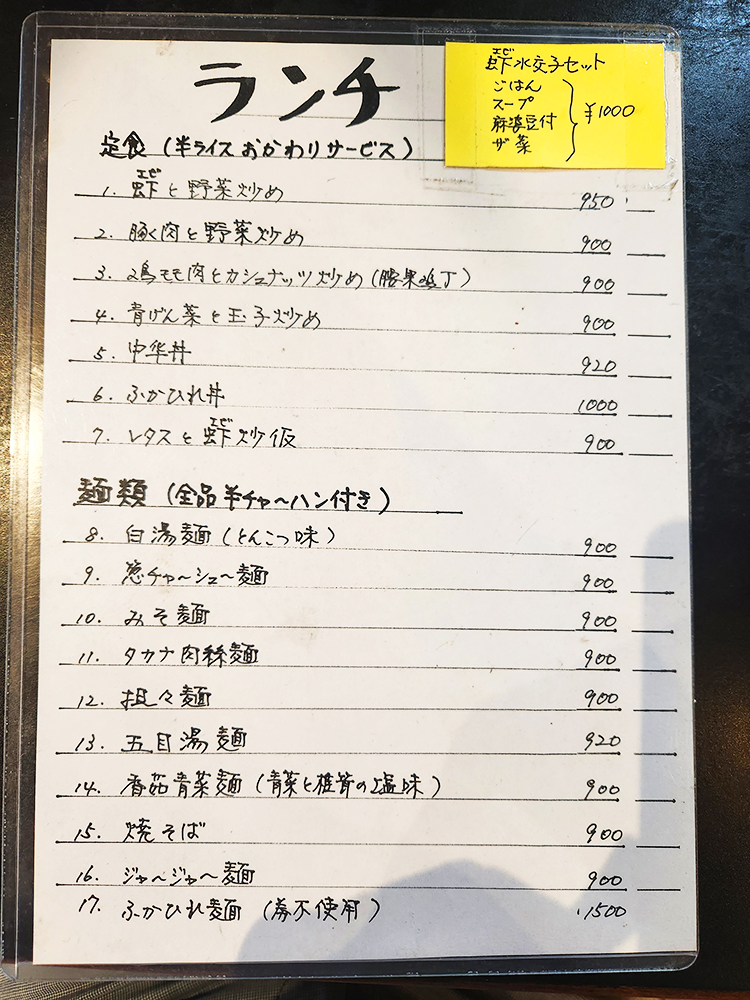 ランチ
エビ
虾水交子セット
ごはん
スープ
麻婆豆付
ザ菜
¥1000
定食(半ライスおかわりサービス)
エビ
1. 虾と野菜炒め 950
2. 豚く肉と野菜炒め 900
3. 鳮モモ肉とカシュナッツ炒め(腰果鸡丁) 900
4. 青げん菜と玉子炒め 900
5. 中华丼 920
6. ふかひれ丼 1000
エビ
7. レタスと虾炒仮 900
麺類(全品半チャ~ハン付き)
8. 白湯麺(とんこつ味) 900
9. 葱チャ~シュ~麺 900
10. みそ麺 900
11. タカナ肉絲麺 900
12. 担々麺 900
13. 五目湯麺 920
14. 香茹青菜麺(青菜と椎茸の塩味) 900
15. 焼そば 900
16. ジャ~ジャ~麺 900
17. ふかひれ麺(券不使用) 1500